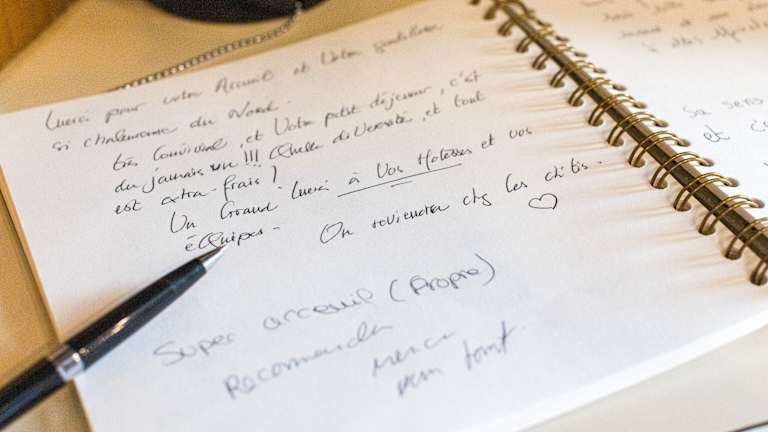 Merci pour votre Accueil et Votre gentillesse
si chaleureuse du Nord.
très convivial, et Votre petit déjeuner, c'est
du jamais vu !!! Quelle diversité, et tout
est extra-frais !
Un Grand Merci à Vos Hotesses et vos
éQuipes.
On reviendra chez les ch'tis.
Super acceuil (Propre)
Recommender
Merci
pour tout.
sa sens
et c'